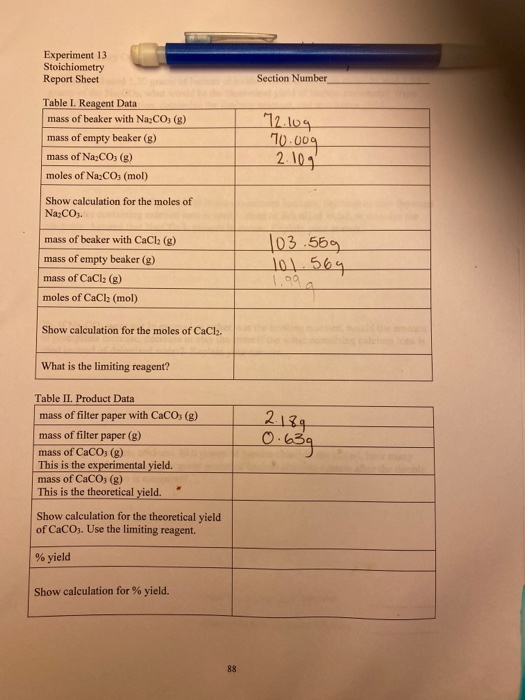 Experiment 13
Stoichiometry
Report Sheet
Section Number
Table I. Reagent Data
mass of beaker with Na₂CO₃ (g) 72.10g
mass of empty beaker (g) 70.00g
mass of Na₂CO₃ (g) 2.10g
moles of Na₂CO₃ (mol)
Show calculation for the moles of
Na₂CO₃.
mass of beaker with CaCl₂ (g) 103.55g
mass of empty beaker (g) 101.56g
mass of CaCl₂ (g) 1.99g
moles of CaCl₂ (mol)
Show calculation for the moles of CaCl₂.
What is the limiting reagent?
Table II. Product Data
mass of filter paper with CaCO₃ (g) 2.18g
mass of filter paper (g) 0.63g
mass of CaCO₃ (g)
This is the experimental yield.
mass of CaCO₃ (g)
This is the theoretical yield.
Show calculation for the theoretical yield
of CaCO₃. Use the limiting reagent.
% yield
Show calculation for % yield.
88